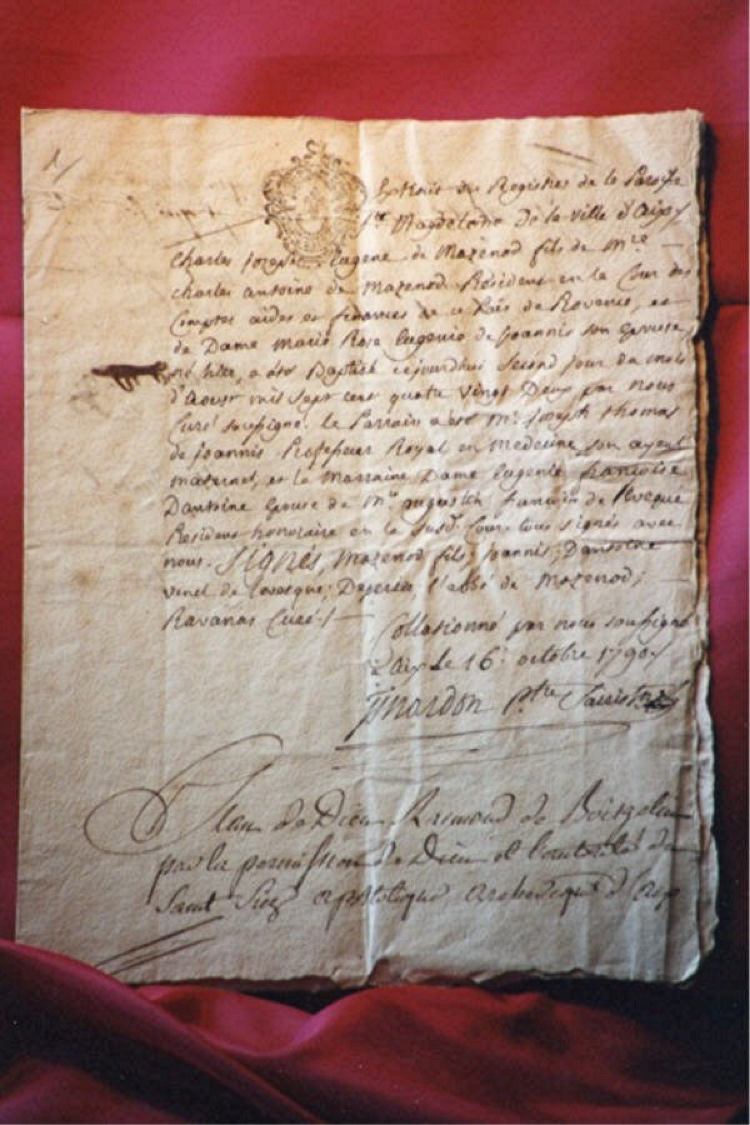 Extrait des Registres de la Paroisse
Ste Magdeleine De la ville d'Aix /
Charles Joseph Eugene de Mazenod fils de Mre
charles antoine de Mazenod President en la Cour des
Comptes aides et finances de ce Païs de Provence, et
de Dame Marie Rose Eugenie de Joannis son Epouse,
né hier, a été Baptisé cejourdhui second jour du mois
d'Aoust mil sept cent quatre vingt Deux par nous
Curé soussigné. le Parrain a été Mr Joseph Thomas
de Joannis Professeur Royal en Medecine son ayeul
maternel, et la Marraine Dame Eugenie françoise
Dantoine Epouse de Mre augustin francois de l'eveque
President honoraire en la susd. Cour tous signés avec
nous. Signés, Mazenod fils; Joannis; Dantoine
vinel de leveque; l'abbé de Mazenod;
Ravanas Curé. /
Collationné par nous soussigné
à Aix le 16: octobre 1790 /
ptre
Jean de Dieu Raimond de Boisgelin
par la permission de Dieu et l'autorité du
Saint Siege apostolique archeveque d'Aix